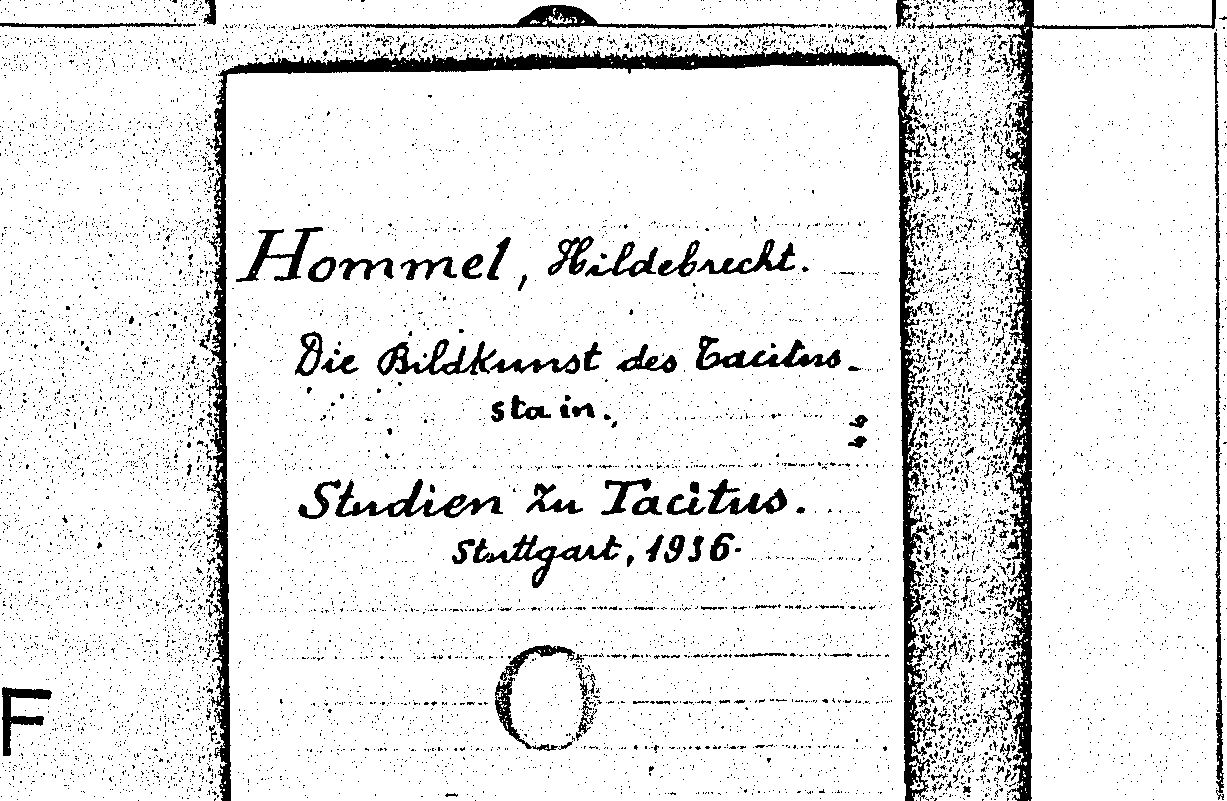 Hommel, Hildebrecht.
Die Bildkunst des Tacitus.
sta in.
Studien zu Tacitus.
Stuttgart, 1936.
F